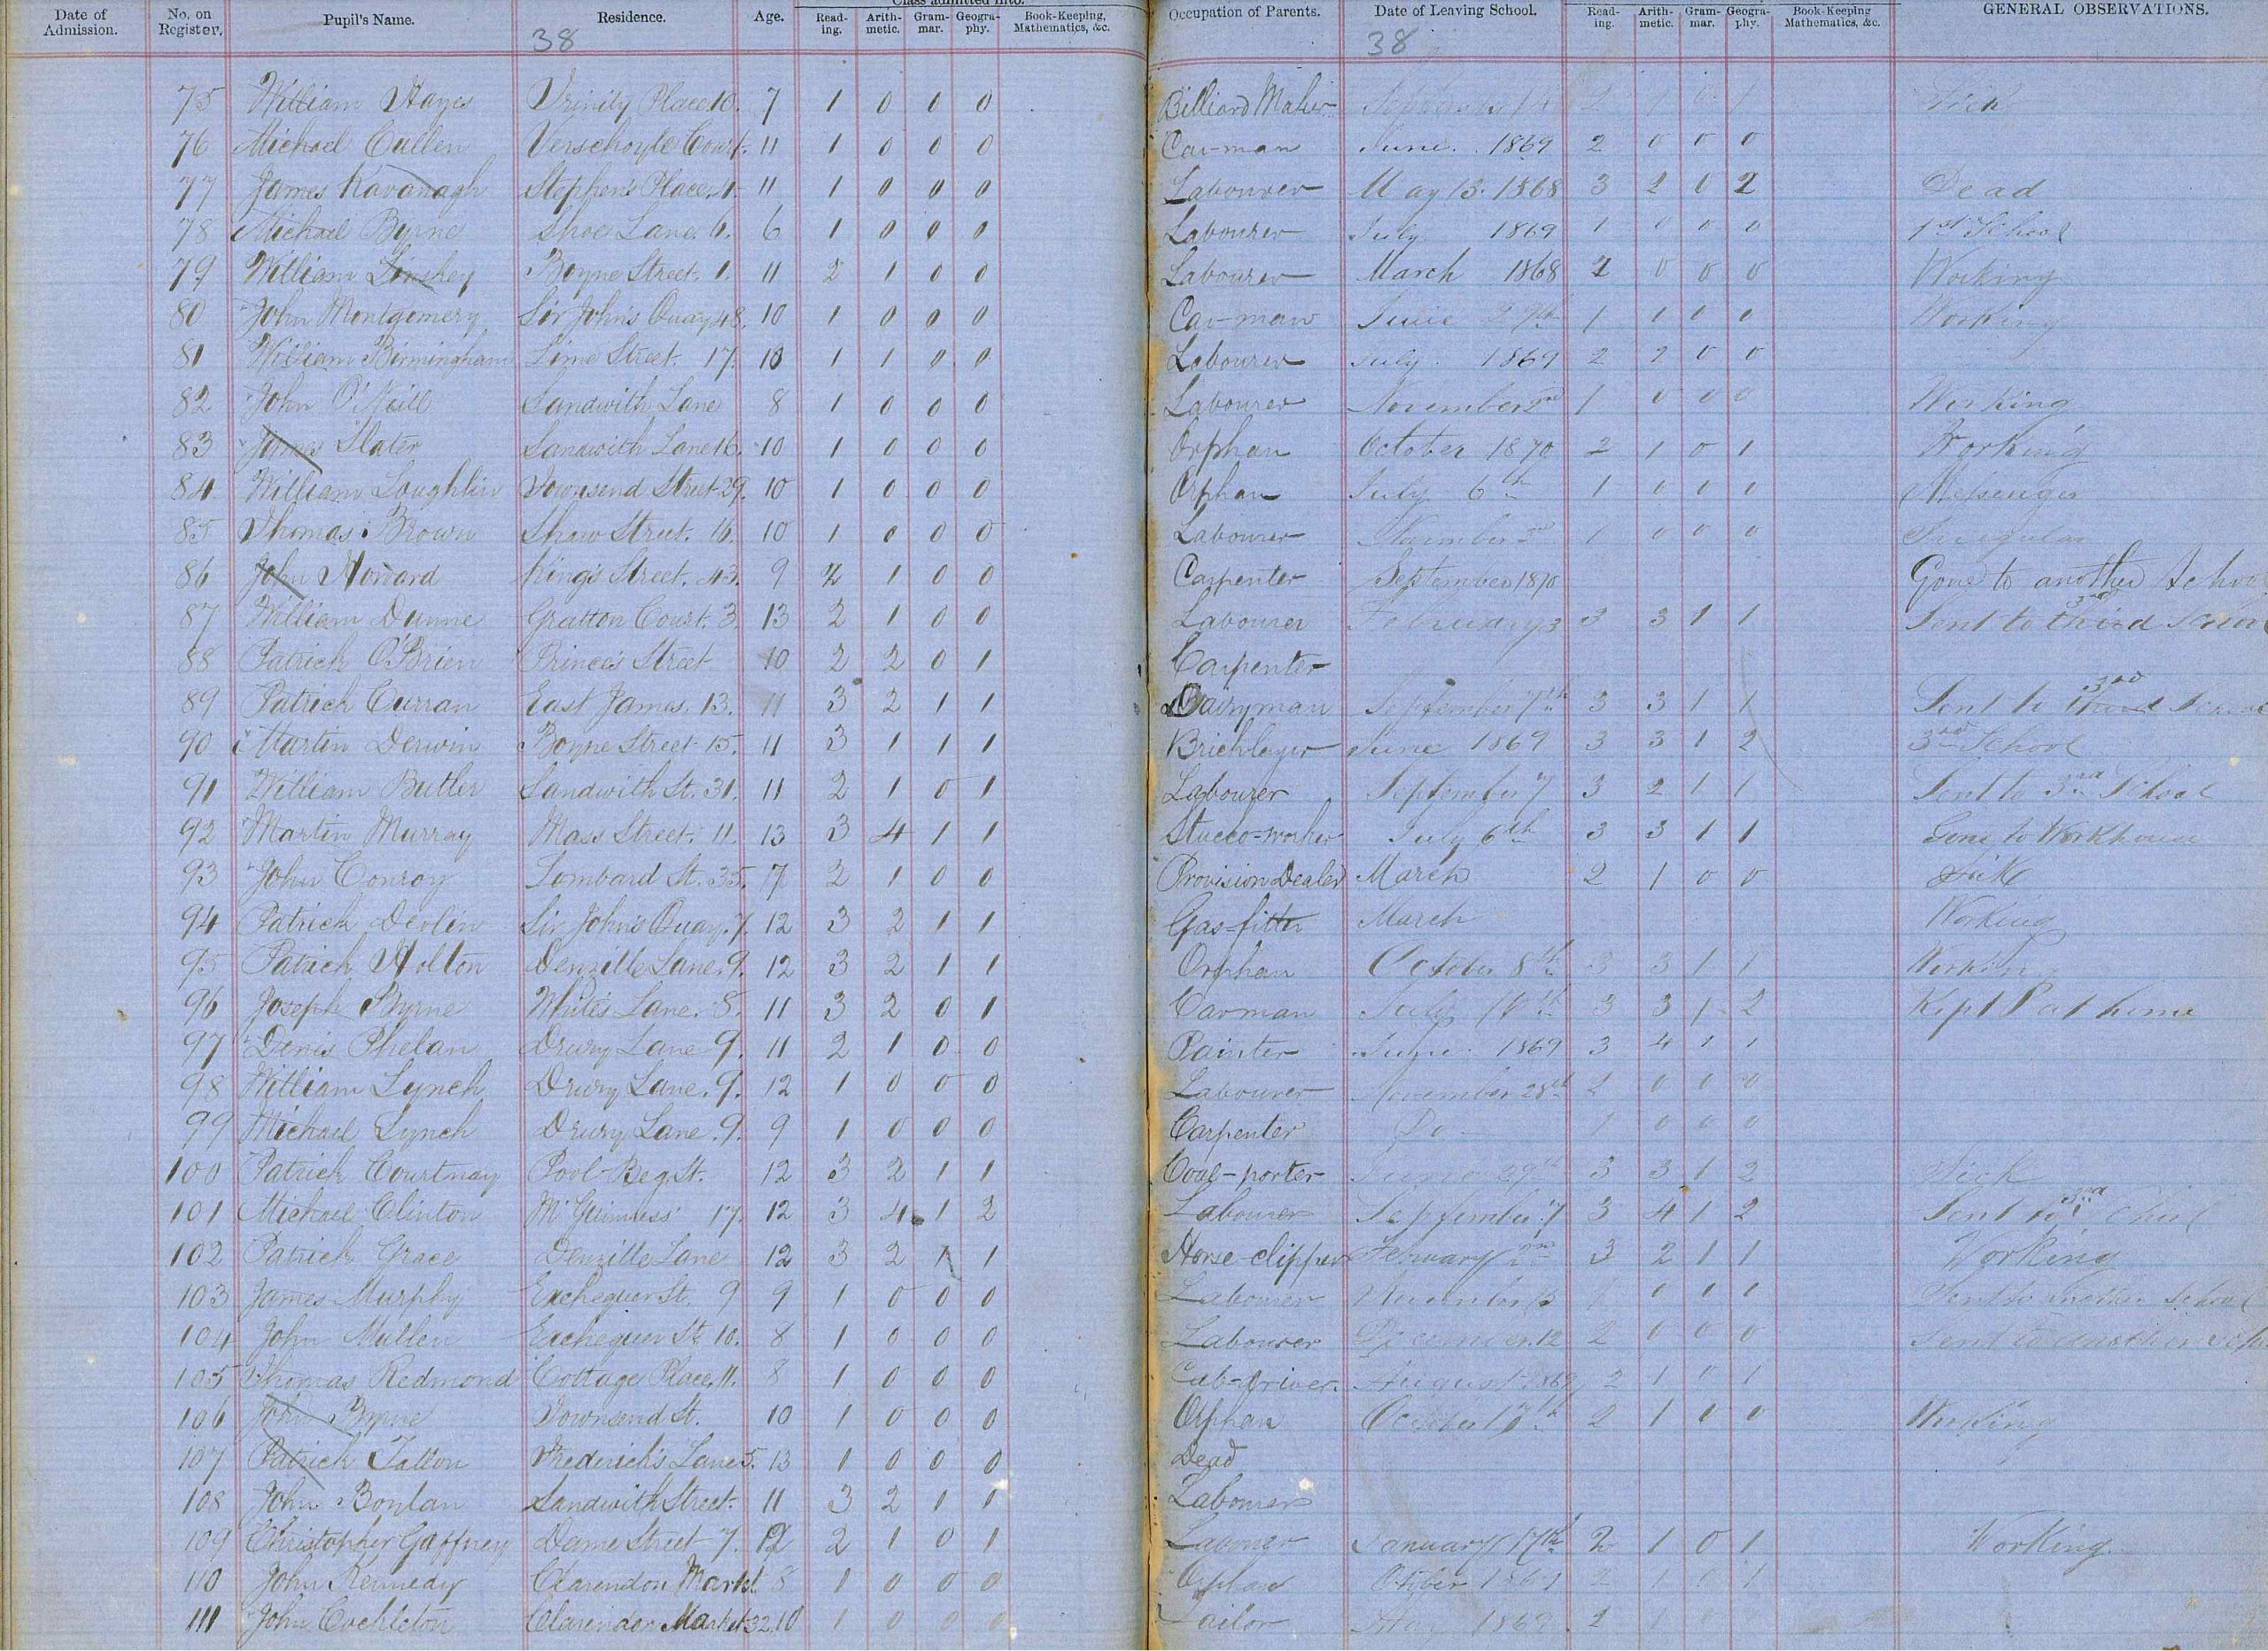 Class admitted into.
Date of Admission. No. on Register. Pupil's Name. Residence. Age. Reading. Arithmetic. Grammar. Geography. Book-Keeping, Mathematics, &c. Occupation of Parents. Date of Leaving School. Reading. Arithmetic. Grammar. Geography. Book-Keeping Mathematics, &c. GENERAL OBSERVATIONS.
38 38
75 William Hayes Trinity Place 10. 7 1 0 0 0 Billiard Maker September Sick
76 Michael Cullen Verschoyle Court. 11 1 0 0 0 Car-man June. 1869 2 0 0 0
77 James Kavanagh Stephen's Place. 1. 11 1 0 0 0 Labourer May 13. 1868 3 2 0 2 Dead
78 Michael Byrne Shoe Lane. 6. 6 1 0 0 0 Labourer July 1869 1 0 0 0 1st School
79 William Linskey Boyne Street. 1. 11 2 1 0 0 Labourer March 1868 2 0 0 0 Working
80 John Montgomery Sir John's Quay 48. 10 1 0 0 0 Car-man June 29th 1 1 0 0 Working
81 William Birmingham Lime Street. 17. 10 1 1 0 0 Labourer July 1869 2 2 0 0
82 John O'Neill Sandwith Lane 8 1 0 0 0 Labourer November 2nd 1 0 0 0 Working
83 James Slater Sandwith Lane 16. 10 1 0 0 0 Orphan October 1870 2 1 0 1 Working
84 William Loughlin Townsend Street 29. 10 1 0 0 0 Orphan July 6th 1 0 0 0 Messenger
85 Thomas Brown Shaw Street. 16. 10 1 0 0 0 Labourer November 1 0 0 0 Irregular
86 John Howard King's Street. 43. 9 2 1 0 0 Carpenter September 1870 Gone to another School
87 William Dunne Grattan Court. 3. 13 2 1 0 0 Labourer February 3 3 3 1 1 Sent to third 3rd School
88 Patrick O'Brien Prince's Street 10 2 2 0 1 Carpenter
89 Patrick Curran East James. 13. 11 3 2 1 1 Dairyman September 7th 3 3 1 1 Sent to third 3rd School
90 Martin Derwin Boyne Street 15. 11 3 1 1 1 Bricklayer June 1869 3 3 1 2 3rd School
91 William Butler Sandwith St. 31. 11 2 1 0 1 Labourer September 7 3 2 1 1 Sent to 3rd School
92 Martin Murray Mass Street. 11. 13 3 4 1 1 Stucco-worker July 6th 3 3 1 1 Gone to Workhouse
93 John Conroy Lombard St. 35. 7 2 1 0 0 Provision Dealer March 2 1 0 0 Sick
94 Patrick Devlin Sir John's Quay. 7. 12 3 2 1 1 Gas-fitter March Working
95 Patrick Holton Denzille Lane. 9. 12 3 2 1 1 Orphan October 8th 3 3 1 1 Working
96 Joseph Byrne White's Lane. 8. 11 3 2 0 1 Carman July 14th 3 3 1 2 Kept at home
97 Denis Phelan Drury Lane 9. 11 2 1 0 0 Painter June. 1869 3 4 1 1
98 William Lynch Drury Lane. 9. 12 1 0 0 0 Labourer November 28th 2 0 0 0
99 Michael Lynch Drury Lane. 9. 9 1 0 0 0 Carpenter Do 1 0 0 0
100 Patrick Courtnay Pool-Beg St. 12 3 2 1 1 Coal-porter June 29th 3 3 1 2 Sick
101 Michael Clinton McGuinness' 17. 12 3 4 1 2 Labourer September 7 3 4 1 2 Sent to 3rd
102 Patrick Grace Denzille Lane 12 3 2 1 1 Horse-clipper February 2nd 3 2 1 1 Working
103 James Murphy Exchequer St. 9 9 1 0 0 0 Labourer November 13 1 0 0 0 Sent to another School
104 John Mullen Exchequer St. 10. 8 1 0 0 0 Labourer December. 12 2 0 0 0 Sent to another
105 Thomas Redmond Cottage Place. 11. 8 1 0 0 0 Cab-driver. August 1869 2 1 0 1
106 John Byrne Townsend St. 10 1 0 0 0 Orphan October 2 1 0 0 Working
107 Patrick Fallon Frederick's Lane 5. 13 1 0 0 0 Dead
108 John Boylan Sandwith Street. 11 3 2 1 1 Labourer
109 Christopher Gaffney Dame Street 7. 12 2 1 0 1 Labourer January 17th 2 1 0 1 Working
110 John Kennedy Clarendon Markt 8 1 0 0 0 Orphan October 2 1 0 1
111 John Cockleton Clarendon Market 32. 10 1 0 0 0 Tailor 1869 2